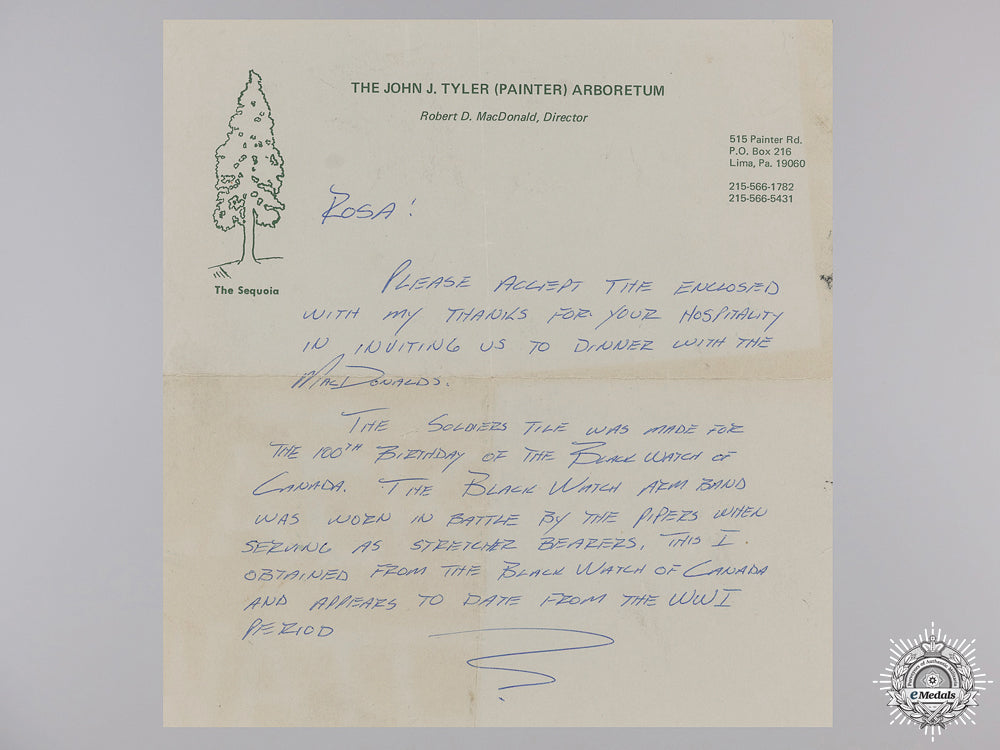 THE JOHN J. TYLER (PAINTER) ARBORETUM
Robert D. MacDonald, Director
515 Painter Rd.
P.O. Box 216
Lima, Pa. 19060
215-566-1782
215-566-5431
The Sequoia
ROSA!
PLEASE ACCEPT THE ENCLOSED
WITH MY THANKS FOR YOUR HOSPITALITY
IN INVITING US TO DINNER WITH THE
MACDONALDS.
THE SOLDIERS TILE WAS MADE FOR
THE 100TH BIRTHDAY OF THE BLACK WATCH OF
CANADA. THE BLACK WATCH ARM BAND
WAS WORN IN BATTLE BY THE PIPERS WHEN
SERVING AS STRETCHER BEARERS. THIS I
OBTAINED FROM THE BLACK WATCH OF CANADA
AND APPEARS TO DATE FROM THE WWI
PERIOD
eMedals